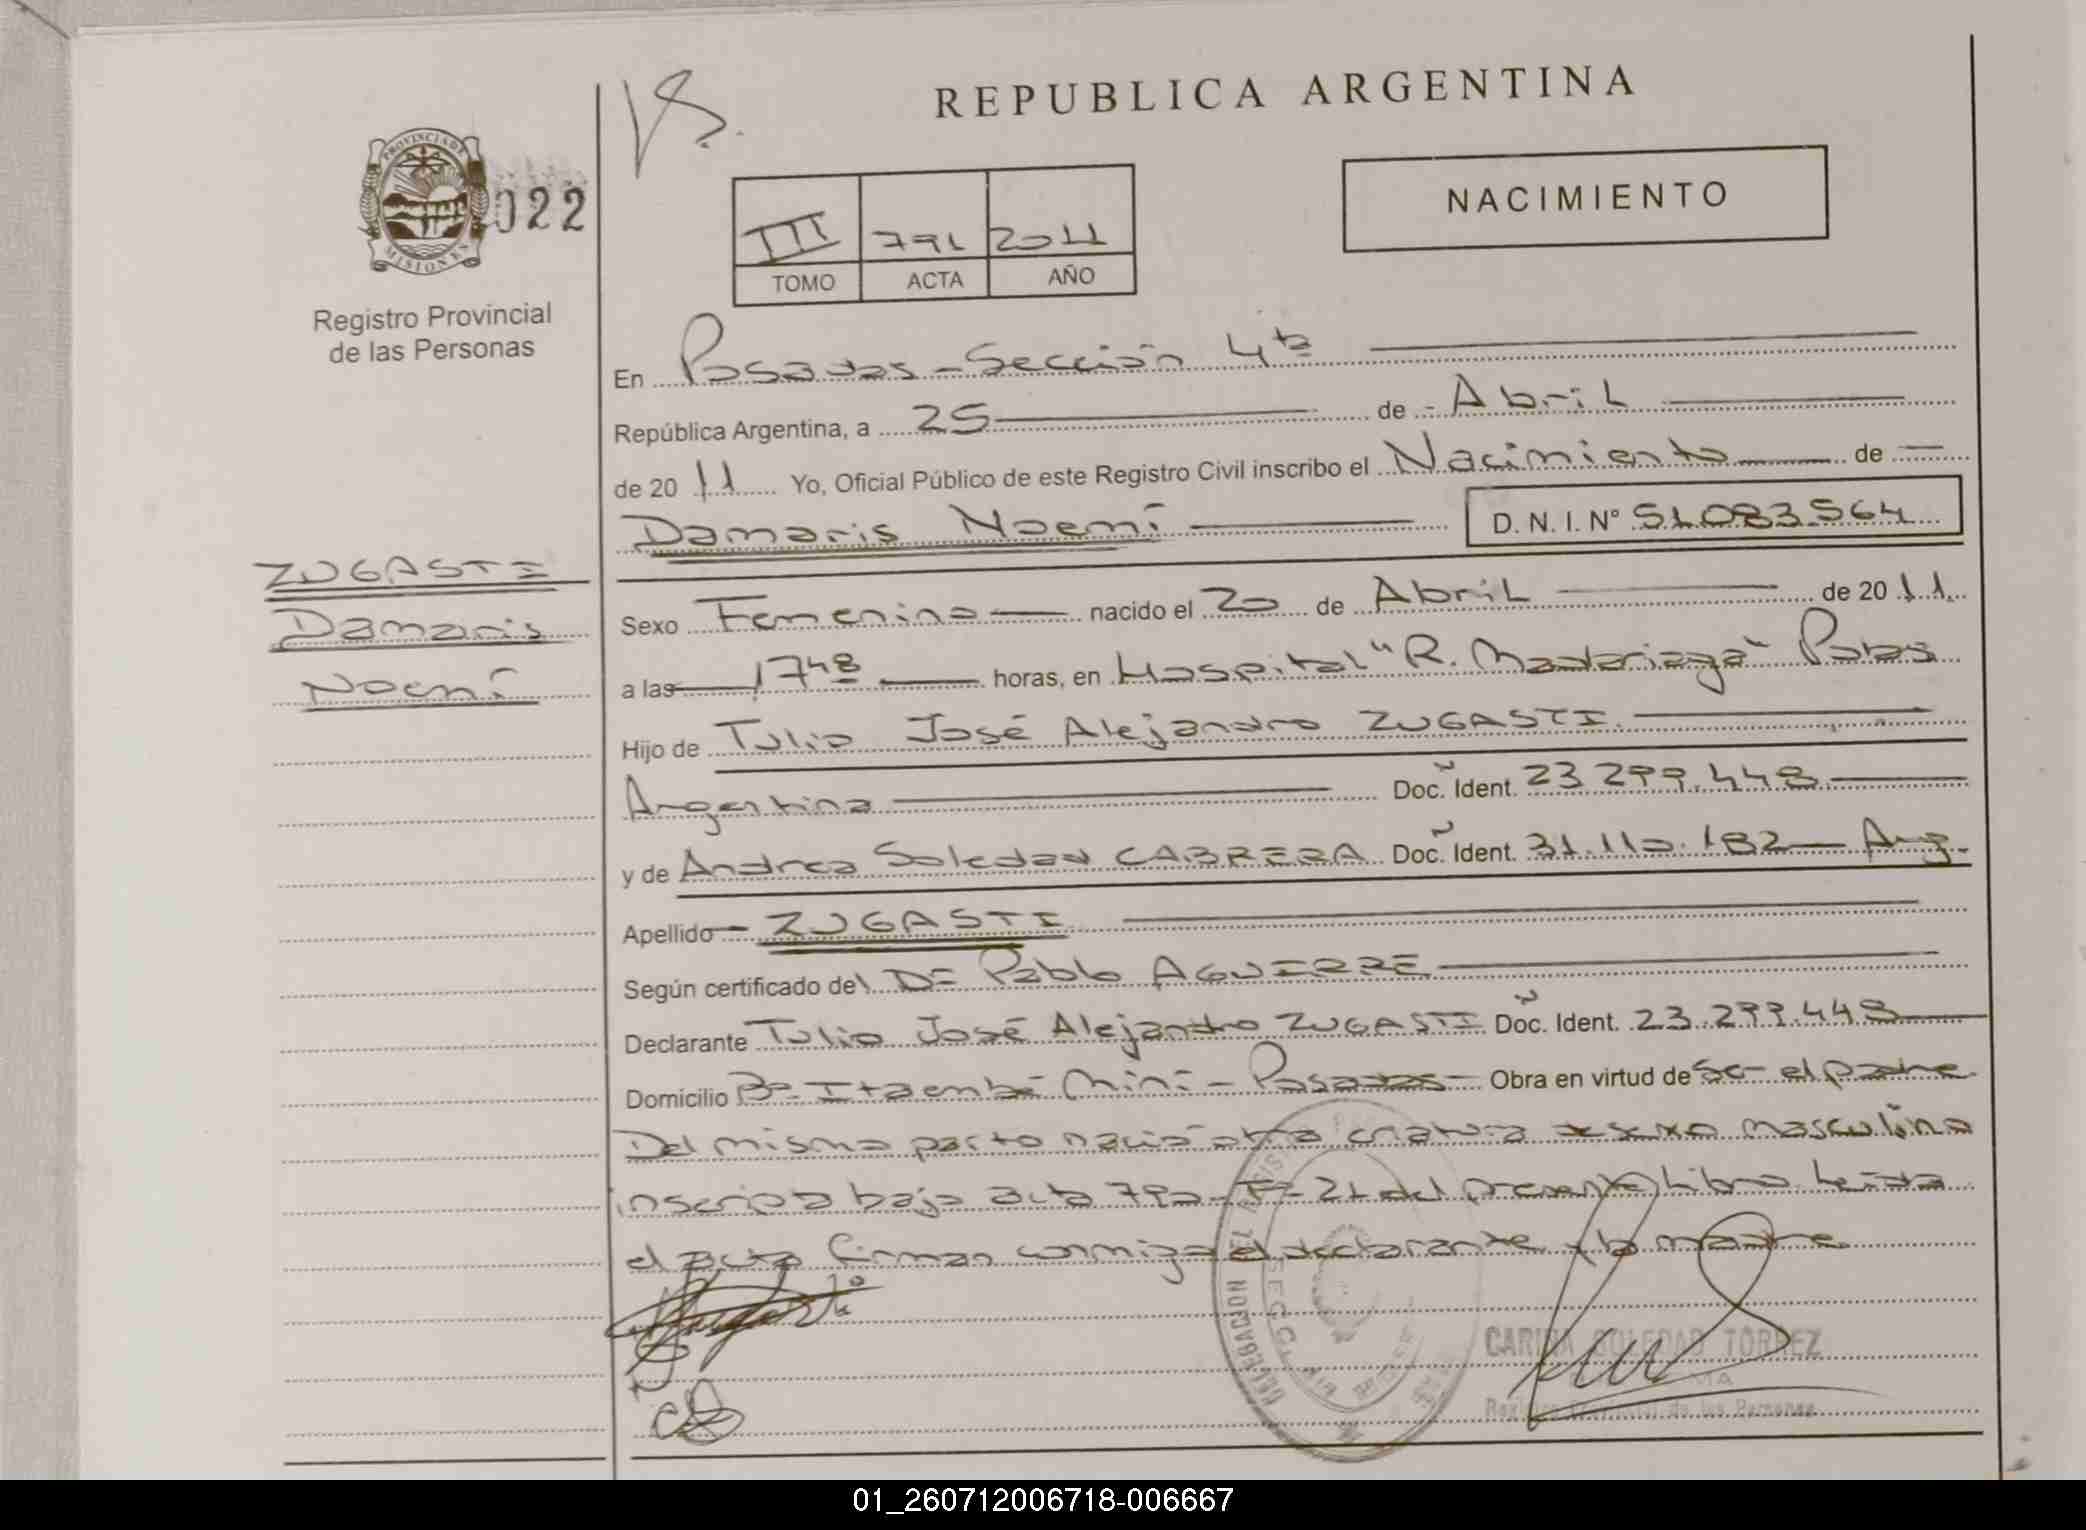 REPUBLICA ARGENTINA
PROVINCIA DE
MISIONES
022
Registro Provincial
de las Personas
NACIMIENTO
III 791 2011
TOMO ACTA AÑO
En Posadas - Sección 4ta
República Argentina, a 25 de Abril
de 2011 Yo, Oficial Público de este Registro Civil inscribo el Nacimiento de
Damaris Noemí D. N. I. Nº 51.083.564
ZUGASTI
Damaris
Noemí
Sexo Femenino nacido el 20 de Abril de 2011
a las 17 48 horas, en Hospital "R. Madariaga" Pdas
Hijo de Tulio José Alejandro ZUGASTI
Argentina Doc. Ident. 23.299.448
y de Andrea Soledad CABRERA Doc. Ident. 31.110.182 Arg.
Apellido ZUGASTI
Según certificado del Dr Pablo AGUIRRE
Declarante Tulio José Alejandro ZUGASTI Doc. Ident. 23.299.448
Domicilio Bº Itaembé Miní - Posadas Obra en virtud de ser el padre
Del mismo parto nació otra criatura de sexo masculino
inscripta bajo acta 790 Fº 21 del presente Libro. Leída
el acta firman conmigo el declarante y la madre
DELEGACION DEL REGIS
CARINA SOLEDAD TORREZ
Registro Provincial de las Personas
01_260712006718-006667